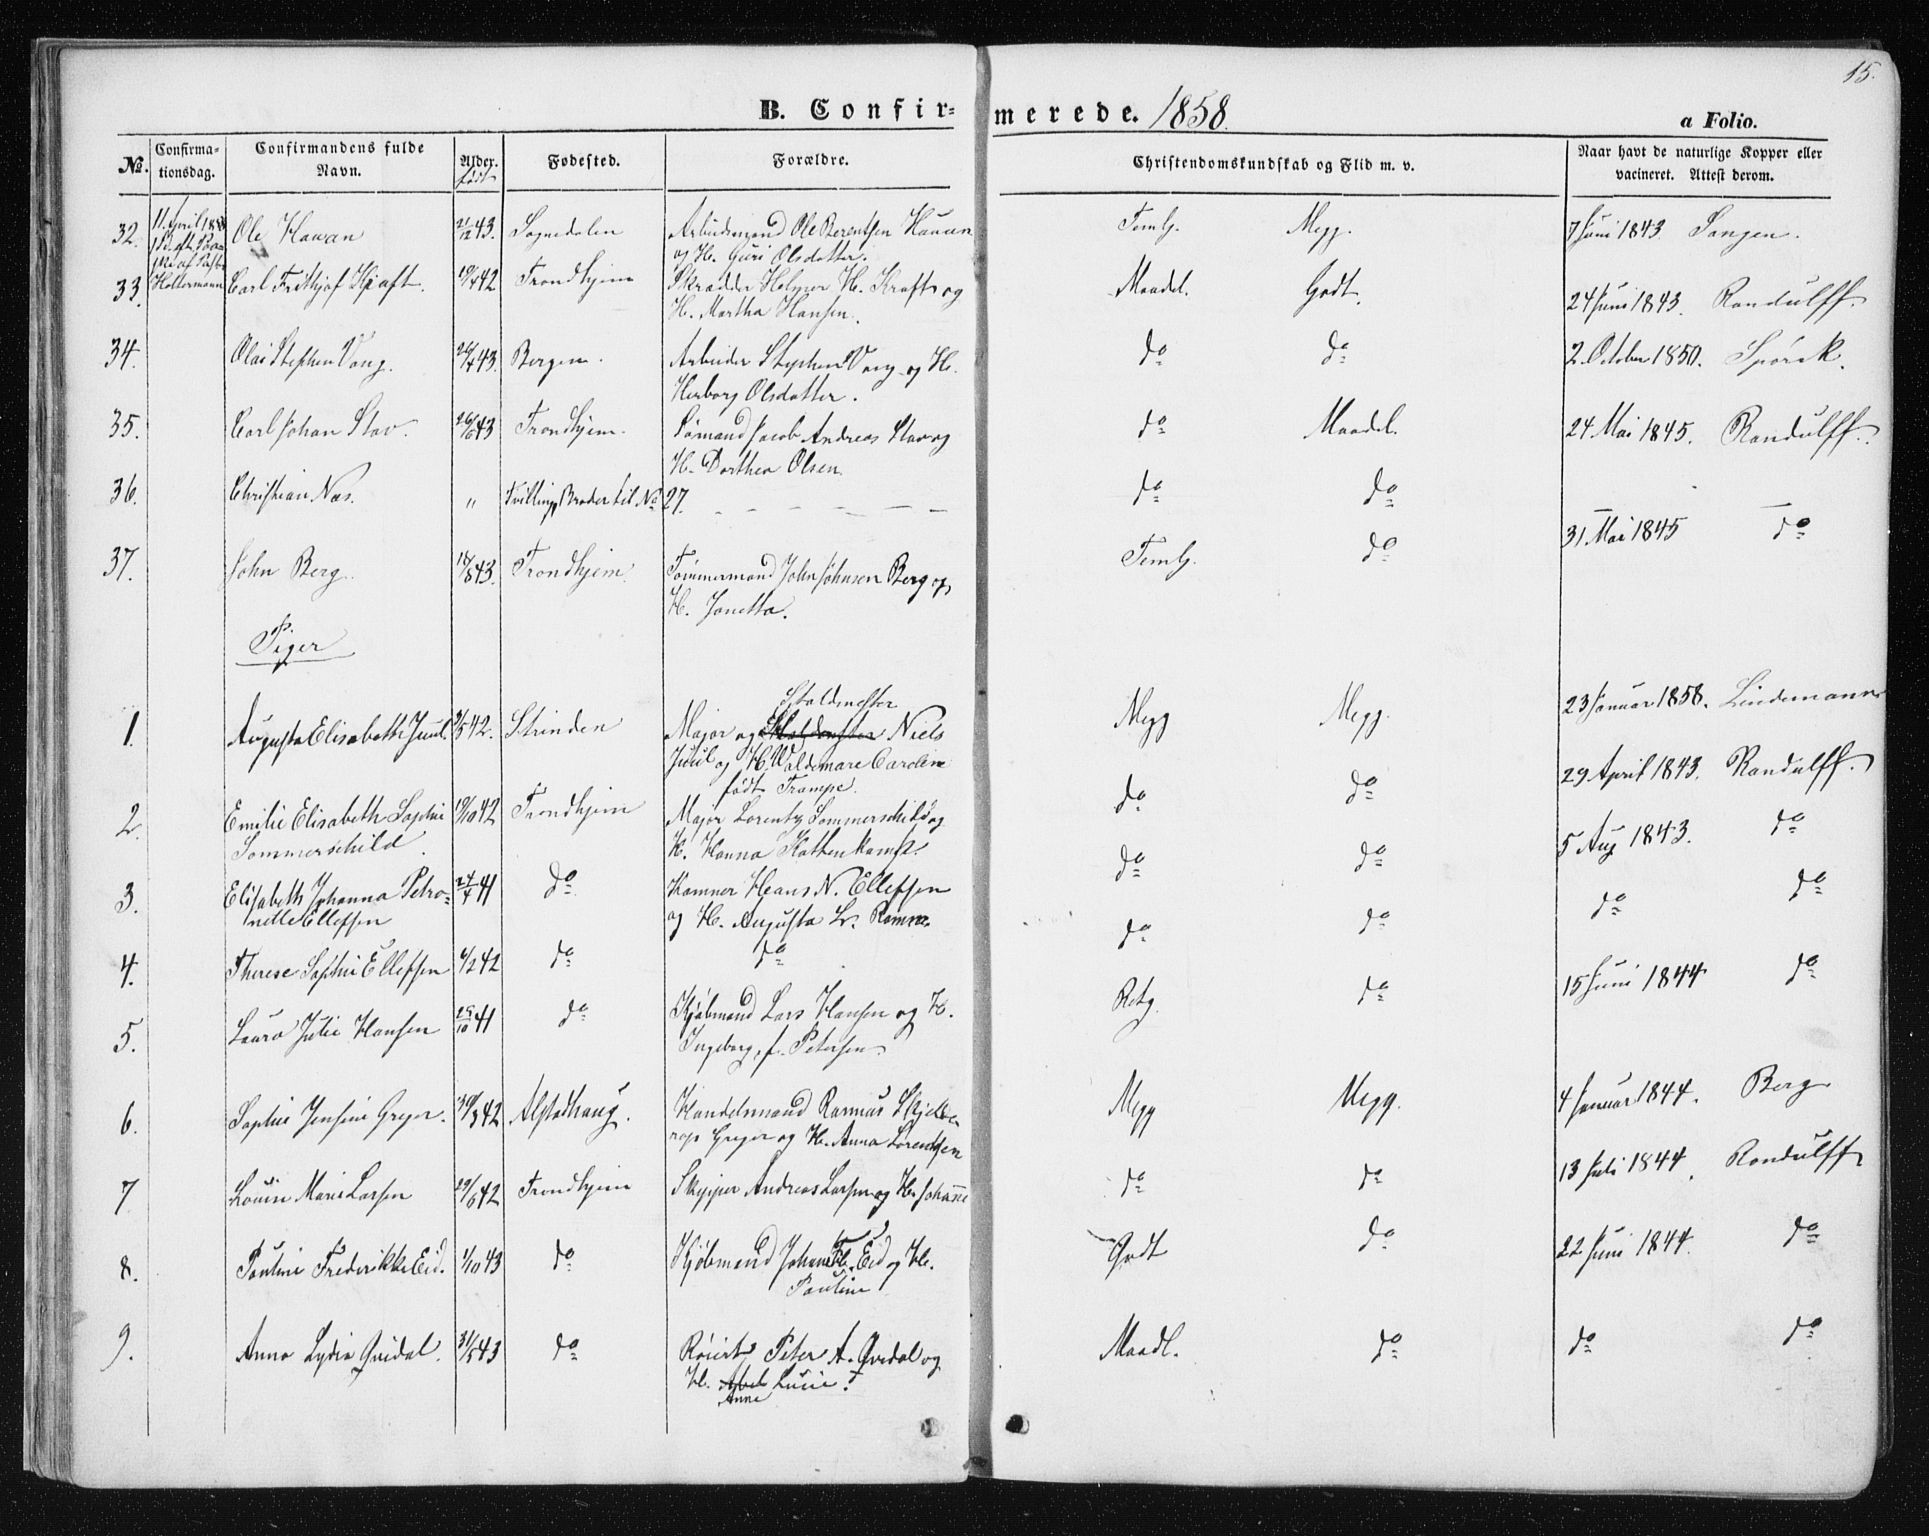 15.
B. Confir- merede. 1858. a Folio.
No. Confirma-tionsdag. Confirmandens fulde Navn. Alder. født Fødested. Forældre. Christendomskundskab og Flid m. v. Naar havt de naturlige Kopper eller vacineret. Attest derom.
32. 11 April 1858 Ole Hawan 2/12 43. Sognedalen Arbeidsmand Ole Berentsen Hauan Temlg. Megg. 7 Juni 1843. Sangen.
og H. Guri Olsdatter.
33. Holtermann Carl Frithjof Kraft. 19/7 42 Trondhjem Skrædder Helmer H. Kraft og Maadel. Godt. 24 Juni 1843. Randulff.
H. Martha Hansen.
34. Olai Stephen Vang. 26/4 43. Bergen. Arbeider Stephen Vang og H. do do 2. October 1850. Spörck.
Herborg Olsdatter.
35. Carl Johan Stav. 26/6 43 Trondhjem. Sømand Jacob Andreas Stav og do Maadel. 24 Mai 1845. Randulff.
H. Dorthea Olsen.
36. Christian Næs. " Tvilling Broder til No 27. — — — — — — do do —
37. John Berg. 18/8 43. Trondhjem. Tømmermand John Johnsen Berg og Temlg. do 31. Mai 1845 do
H. Janetta.
Piger
Staldmester
1. Augusta Elisabeth Juul. 2/5 42. Strinden Major og Staldmester Niels Megg Megg. 23 Januar 1858. Lindemann
Juul og H. Valdemare Caroline
født Trampe.
2. Emilie Elisabeth Sophie 19/10 42 Trondhjem Major Lorentz Sommerschild og do do 29 April 1843. Randulff.
Sommerschild. H. Hanna Hattenkamp.
3. Elisabeth Johanna Petro- 24/4 41 do Kæmner Hans N. Ellefsen do do 5 Aug 1843. do
nelle Ellefsen og H. Augusta Lr. Ramm.
4. Therese Sophie Ellefsen 6/2 42 do do do do do do
5. Laura Julie Hansen 29/10 41 do Kjøbmand Lars Hansen og H. Retg. do 15 Juni 1844 do
Ingeborg, f. Petersen
6. Sophie Jensine Greger. 30/3 42 Alstadhaug. Handelsmand Rasmus Skjelde- Megg Megg. 4 Januar 1844. Berg
rup Greger og H. Anna Lorentsen
7 Louise Marie Larsen 29/6 42 Trondhjem Skipper Andreas Larsen og H. Johanne do do 13 Juli 1844. Randulff
8. Pauline Frederikke Eid. 1/10 43 do Kjøbmand Johan Fr. Eid og H. Godt do 22 Juni 1844. do
Pauline
9. Anna Lydia Qvidal. 31/5 43 do Røiert Peter A. Qvedal og Maadl. do do do
H. Abel Lucie.
Anne